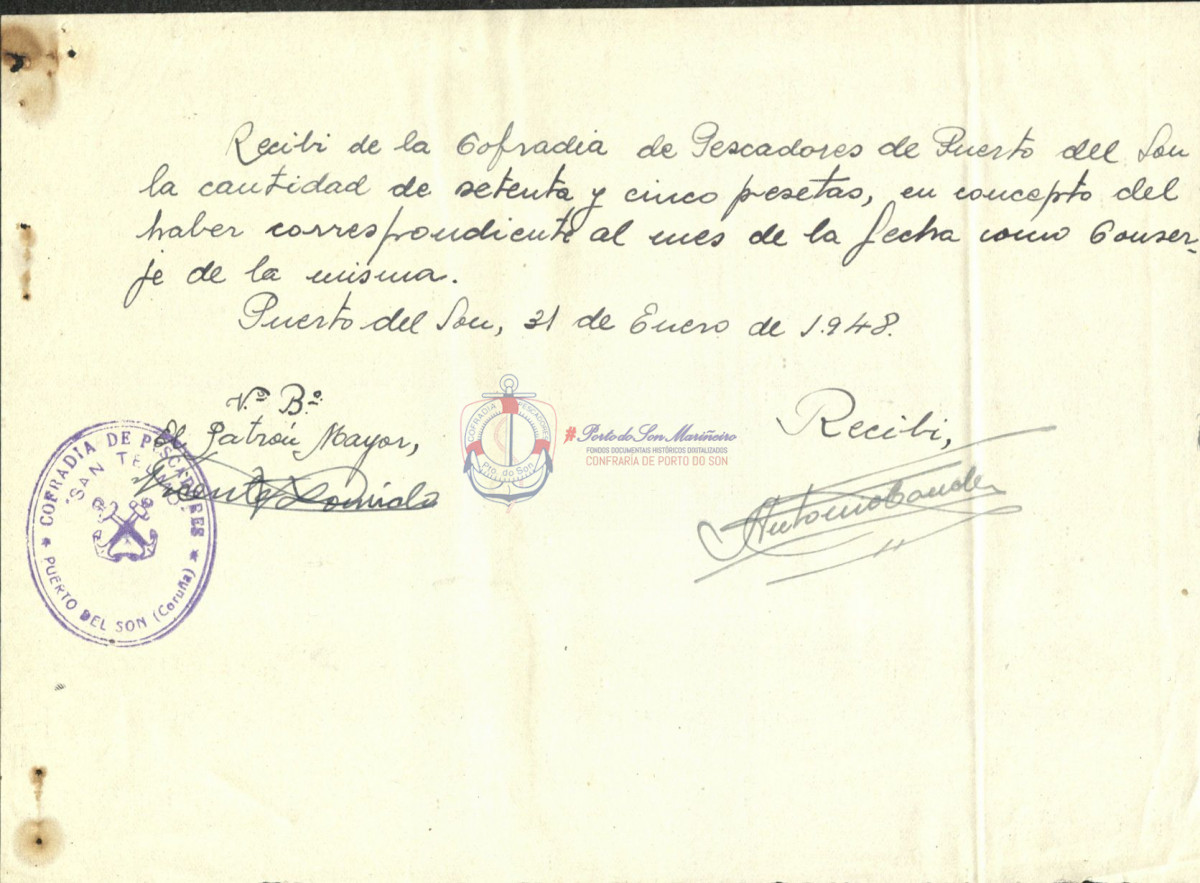 Recibi de la Cofradia de Pescadores de Puerto del Son
la cantidad de setenta y cinco pesetas, en concepto del
haber correspondiente al mes de la fecha como Conser-
je de la misma.
Puerto del Son, 31 de Enero de 1.948.
V.º B.º
El Patrón Mayor,
Vicente
COFRADIA DE PESCADORES
"SAN TELMO"
PUERTO DEL SON (Coruña)
COFRADIA PESCADORES
Pto. do Son
#Porto do Son Mariñeiro
FONDOS DOCUMENTAIS HISTÓRICOS DIXITALIZADOS
CONFRARÍA DE PORTO DO SON
Recibi,
Antonio